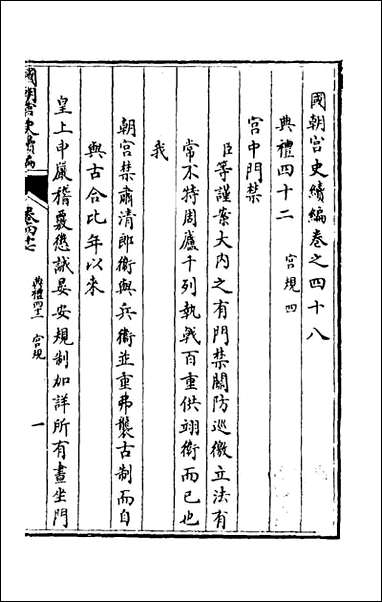 國朝宮史續編卷之四十八
典禮四十二 宮規四
宮中門禁
臣等謹案大內之有門禁關防巡徼立法有
常不特周廬千列執戟百重供翊衛而已也
我
朝宮禁肅清郎衛與兵衛並重弗襲古制而自
與古合比年以來
皇上申嚴稽覈懲誡晏安規制加詳所有晝坐門
國朝宮史續編 卷四十八 典禮四十二 宮規 一